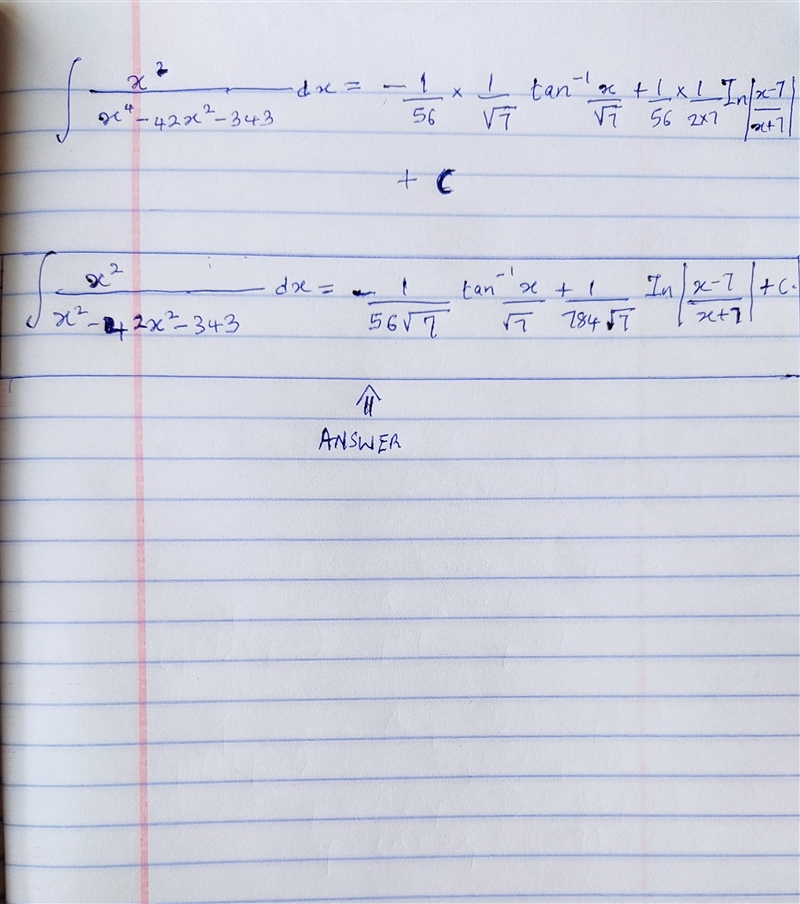 ∫ x²/(x⁴-42x²-343) dx = -1/56 × 1/√7 tan⁻¹ x/√7 + 1/56 × 1/(2×7) In|(x-7)/(x+7)|
+ C
∫ x²/(x²-42x²-343) dx = -1/(56√7) tan⁻¹ x/√7 + 1/(784√7) In|(x-7)/(x+7)| + C.
⇑
ANSWER